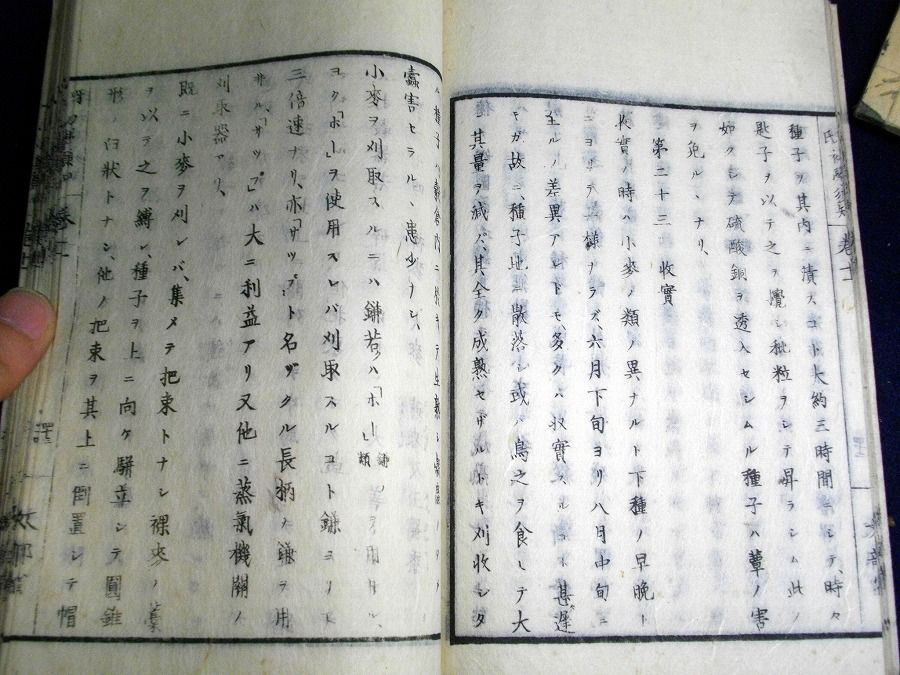 種子ヲ其内ニ漬スコト大約三時間ニシテ、時々
匙子ヲ以テ之ヲ攪シ秕粒ヲシテ昇ラシム此ノ
如クシテ硫酸銅ヲ透入セシムル種子ハ蕈ノ害
ヲ免ル、ナリ、
第二十三 收實
收實ノ時ハ小麥ノ類ノ異ナルト下種ノ早晩ト
ニヨリテ一樣ナラズ、六月下旬ヨリ八月中旬ニ
至ルノ差異アレドモ、多クハ收實スルコト甚遲
キガ故ニ、種子地無散落シ或ハ鳥之ヲ食シテ大
ニ其量ヲ減ズ、其全ク成熟セザルトキ刈收シタ
ル種子ハ
蠧害セラル、患少ナシ、
小麥ヲ刈取スルニハ鎌若クハ「ホー」鎌類
ヨク「ホー」ヲ使用スレバ刈取スルコト鎌ヨリモ
三倍速ナリ、亦「サップ」ト名ヅクル長柄ノ鎌ヲ用
サル、「サップ」ハ大ニ利益アリ又他ニ蒸氣機關ノ
刈取器アリ、
既ニ小麥ヲ刈レバ、集メテ把束トナシ裸麥ノ藁
ヲ以テ之ヲ縛シ、種子ヲ上ニ向ケ駢立シテ圓錐
形 臼狀トナシ、他ノ把束ヲ其上ニ倒置シテ帽